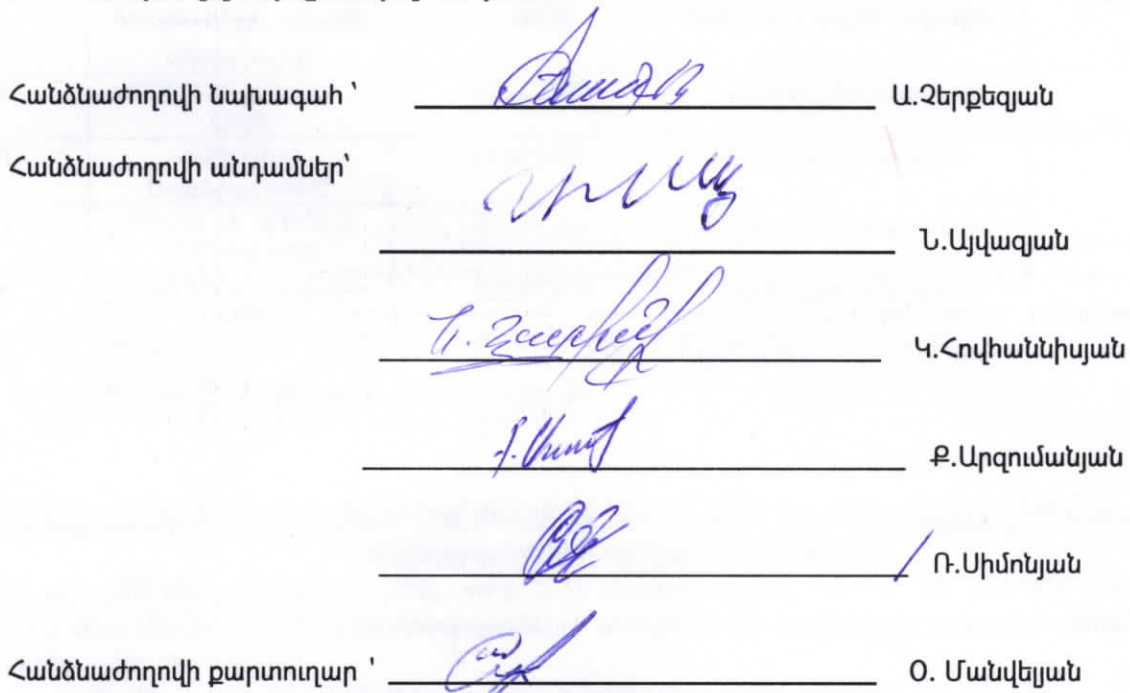 Հանձնաժողովի նախագահ ՝ Ա.Չերքեզյան
Հանձնաժողովի անդամներ՝
Ն.Այվազյան
Կ.Հովհաննիսյան
Ք.Արզումանյան
Ռ.Սիմոնյան
Հանձնաժողովի քարտուղար ՝ Օ. Մանվելյան